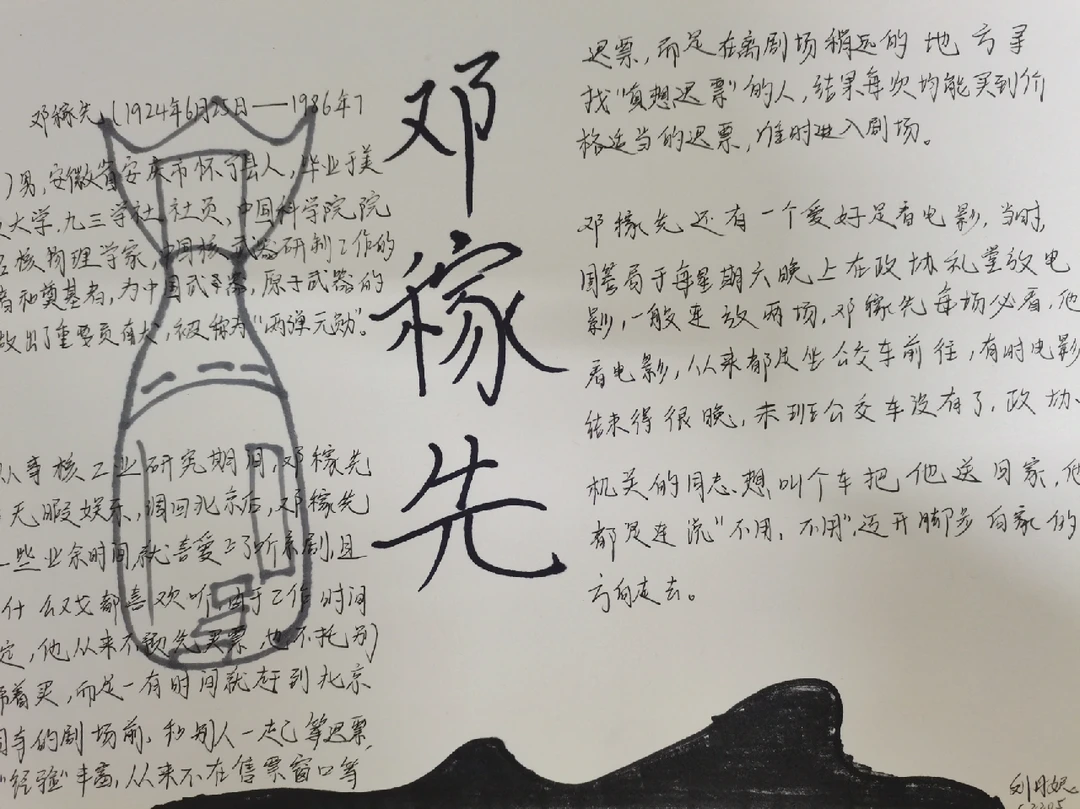 邓稼先 (1924年6月25日——1986年7
)男,安徽省安庆市怀宁县人,毕业于美
大学.九三学社社员,中国科学院院
核物理学家,中国核武器研制工作的
者和奠基者,为中国武器,原子武器的
做出了重要贡献,被称为“两弹元勋”。
从事核工业研究期间,邓稼先
无暇娱乐,调回北京后,邓稼先
一些业余时间,就喜爱上了听京剧,且
什么戏都喜欢听由于工作时间
定,他从来不预先买票,也不托别人
着买,而是一有时间就赶到北京
的剧场前,和别人一起等退票,
“经验”丰富,从来不在售票窗口等
邓稼先
退票,而是在离剧场稍远的地方寻
找“真想退票”的人,结果每次均能买到价
格适当的退票,准时进入剧场。
邓稼先还有一个爱好是看电影,当时,
国管局于每星期六晚上在政协礼堂放电
影,一般连放两场,邓稼先每场必看,他
看电影,从来都是坐公交车前往,有时电影
结束得很晚,末班公交车没有了,政协、
机关的同志想叫个车把他送回家,他
都是连说“不用,不用”,迈开脚步向家的
方向走去。